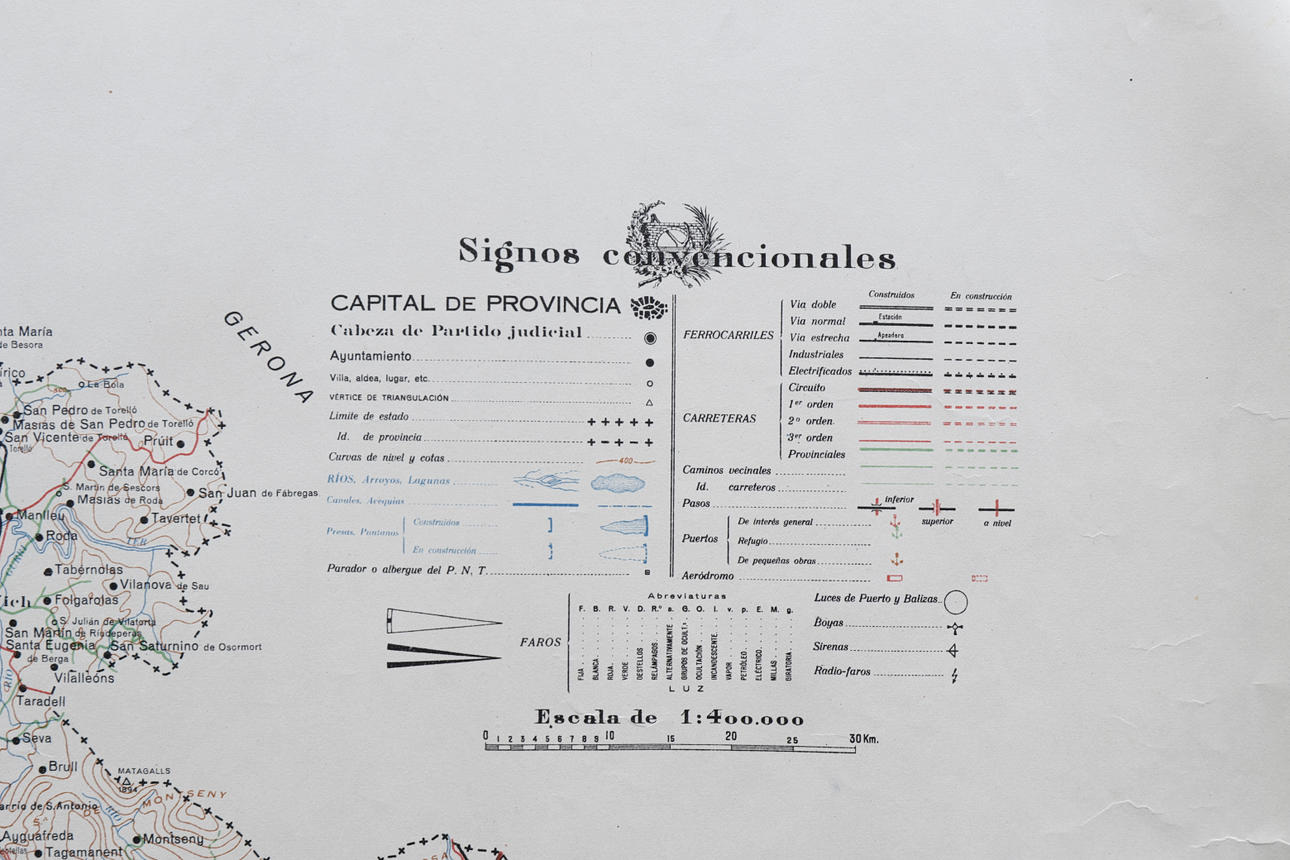 Signos convencionales
CAPITAL DE PROVINCIA
Cabeza de Partido judicial
Ayuntamiento
Villa, aldea, lugar, etc.
VÉRTICE DE TRIANGULACIÓN
Limite de estado
Id. de provincia
Curvas de nivel y cotas
400
RÍOS, Arroyos, Lagunas
Canales, Acequias
Presas, Pantanos
Construidos
En construcción
Parador o albergue del P. N. T.
Construidos
En construcción
FERROCARRILES
Via doble
Via normal
Estación
Via estrecha
Apeadero
Industriales
Electrificados
CARRETERAS
Circuito
1er orden
2o orden
3er orden
Provinciales
Caminos vecinales
Id. carreteros
Pasos
inferior
superior
a nivel
Puertos
De interés general
Refugio
De pequeñas obras
Aeródromo
FAROS
Abreviaturas
F. B. R. V. D. R.º a. G. O. I. v. p. E. M. g.
FIJA
BLANCA
ROJA
VERDE
DESTELLOS
RELÁMPAGOS
ALTERNATIVAMENTE
GRUPOS DE OCULT.s
OCULTACIÓN
INCANDESCENTE
VAPOR
PETRÓLEO
ELÉCTRICO
MILLAS
GIRATORIA
LUZ
Luces de Puerto y Balizas
Boyas
Sirenas
Radio-faros
Escala de 1:400.000
0 1 2 3 4 5 6 7 8 9 10 15 20 25 30 Km.
GERONA
nta María
de Besora
írico
La Bola
San Pedro de Torelló
Masías de San Pedro de Torelló
San Vicente de Torelló
Torelló
Pruit
Santa María de Corcó
S. Martín de Sescors
Masías de Roda
San Juan de Fábregas
Manlleu
Tavertet
Roda
TER
Tabérnolas
Vilanova de Sau
Folgarolas
ich
S. Julián de Vilatorta
San Martín de Riudeperas
Santa Eugenia
de Berga
San Saturnino de Osormort
Vilalleóns
RÍO
Taradell
Seva
Brull
MATAGALLS
1694
MONTSENY
DE
Sª
RÍO
arrio de S. Antonio
Ayguafreda
Montseny
Tagamanent